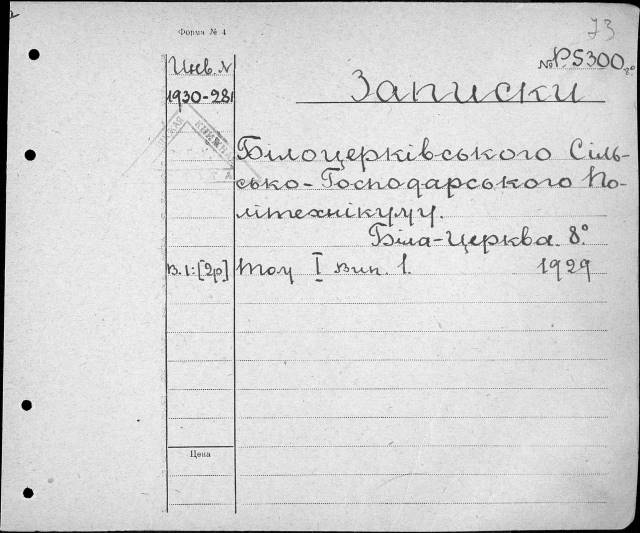 Форма № 4
73
Инв. №
№ PS300 8°
1930-281
Записки
Білоцерківського Сіль-
сько-Господарського По-
літехнікуму.
Біла-Церква. 8°.
В. 1: [2р]
Том I вип. 1. 1929
Цена